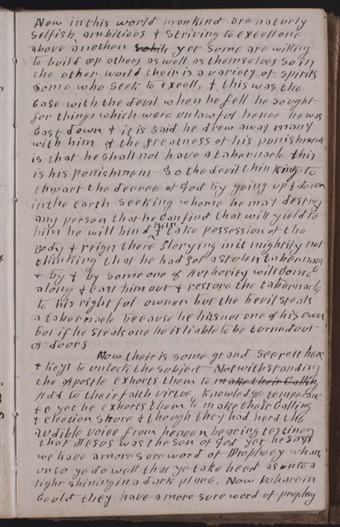 Now in this world mankind are naturly
selfish, ambitious & striving to excell one
above another yet some are willing
to build up others as well as themselves so in
the other world their is a variety of spirits
Some who seek to excell, & this was the
case with the devil when he fell he sought
for things which were unlawful hence he was
Cast down & it is said he drew away many
with him & the greatness of his punishment
is that he shall not have a tabernacle this
is his punishment So the devil thinking to
thwart the decree of God by going up & down
in the earth seeking whome he may destroy
any person that he can find that will yield to
him he will bind him & take possession of the
body & reign there glorying in it mightily not
thinking that he had got a stolen tabernacle
& by & by some one of Authority will come
along & cast him out & restore the tabernacle
to his rightful owner but the Devil steals
a tabernacle because he has not one of his own
but if he steals one he is liable to be turned out
of doors
Now their is some grand secrett here
& keys to unlock the subject Notwithstanding
the apostle exhorts them to make their Calling
Add to their faith virtue, Knowledge temperance
& c yet he exhorts them to make their Calling
& election shure & though they had herd the
audible voice from heaven bearing testimony
that Jesus was the son of God yet he says
we have a more sure word of Prophecy where
unto ye do well that ye take heed as unto a
light shining in a dark place. Now wherein
could they have a more sure word of prophecy